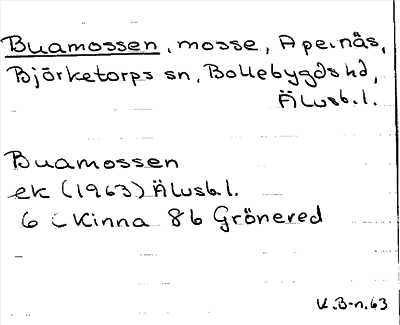 Buamossen, mosse, Apelnäs,
Björketorps sn, Bollebygds hd,
Älvsb.l.
Buamossen
ek (1963) Älvsb.l.
6 C Kinna 8b Grönered
K.B-n.63